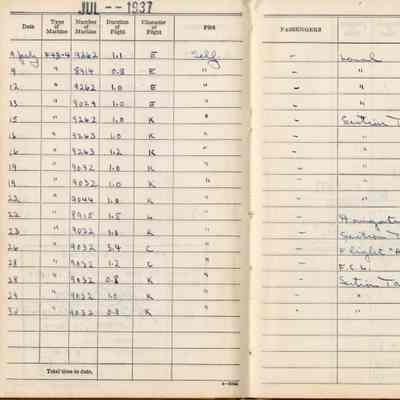 JUL -- 1937
Date Type of Machine Number of Machine Duration of Flight Character of Flight PBS PASSENGERS
9 July F4B-4 9262 1.1 E Self - Local
9 " 8914 0.8 E " - "
12 " 9262 1.0 E " - "
13 " 9029 1.0 E " - "
15 " 9262 1.0 K " - Section
16 " 9263 1.0 K " - "
16 " 9263 1.2 K " - "
19 " 9032 1.0 K " - "
19 " 9032 1.0 K " - "
22 " 9044 1.0 K " - "
22 " 8915 1.5 L "
23 " 9022 1.0 K " - Section
26 " 9032 3.4 C " - Flight
28 " 9032 1.2 G " - F.C.L.
28 " 9032 0.8 K " - Section Ta
29 " 9032 1.0 K " - "
30 " 9032 0.8 K " - "
Total time to date,